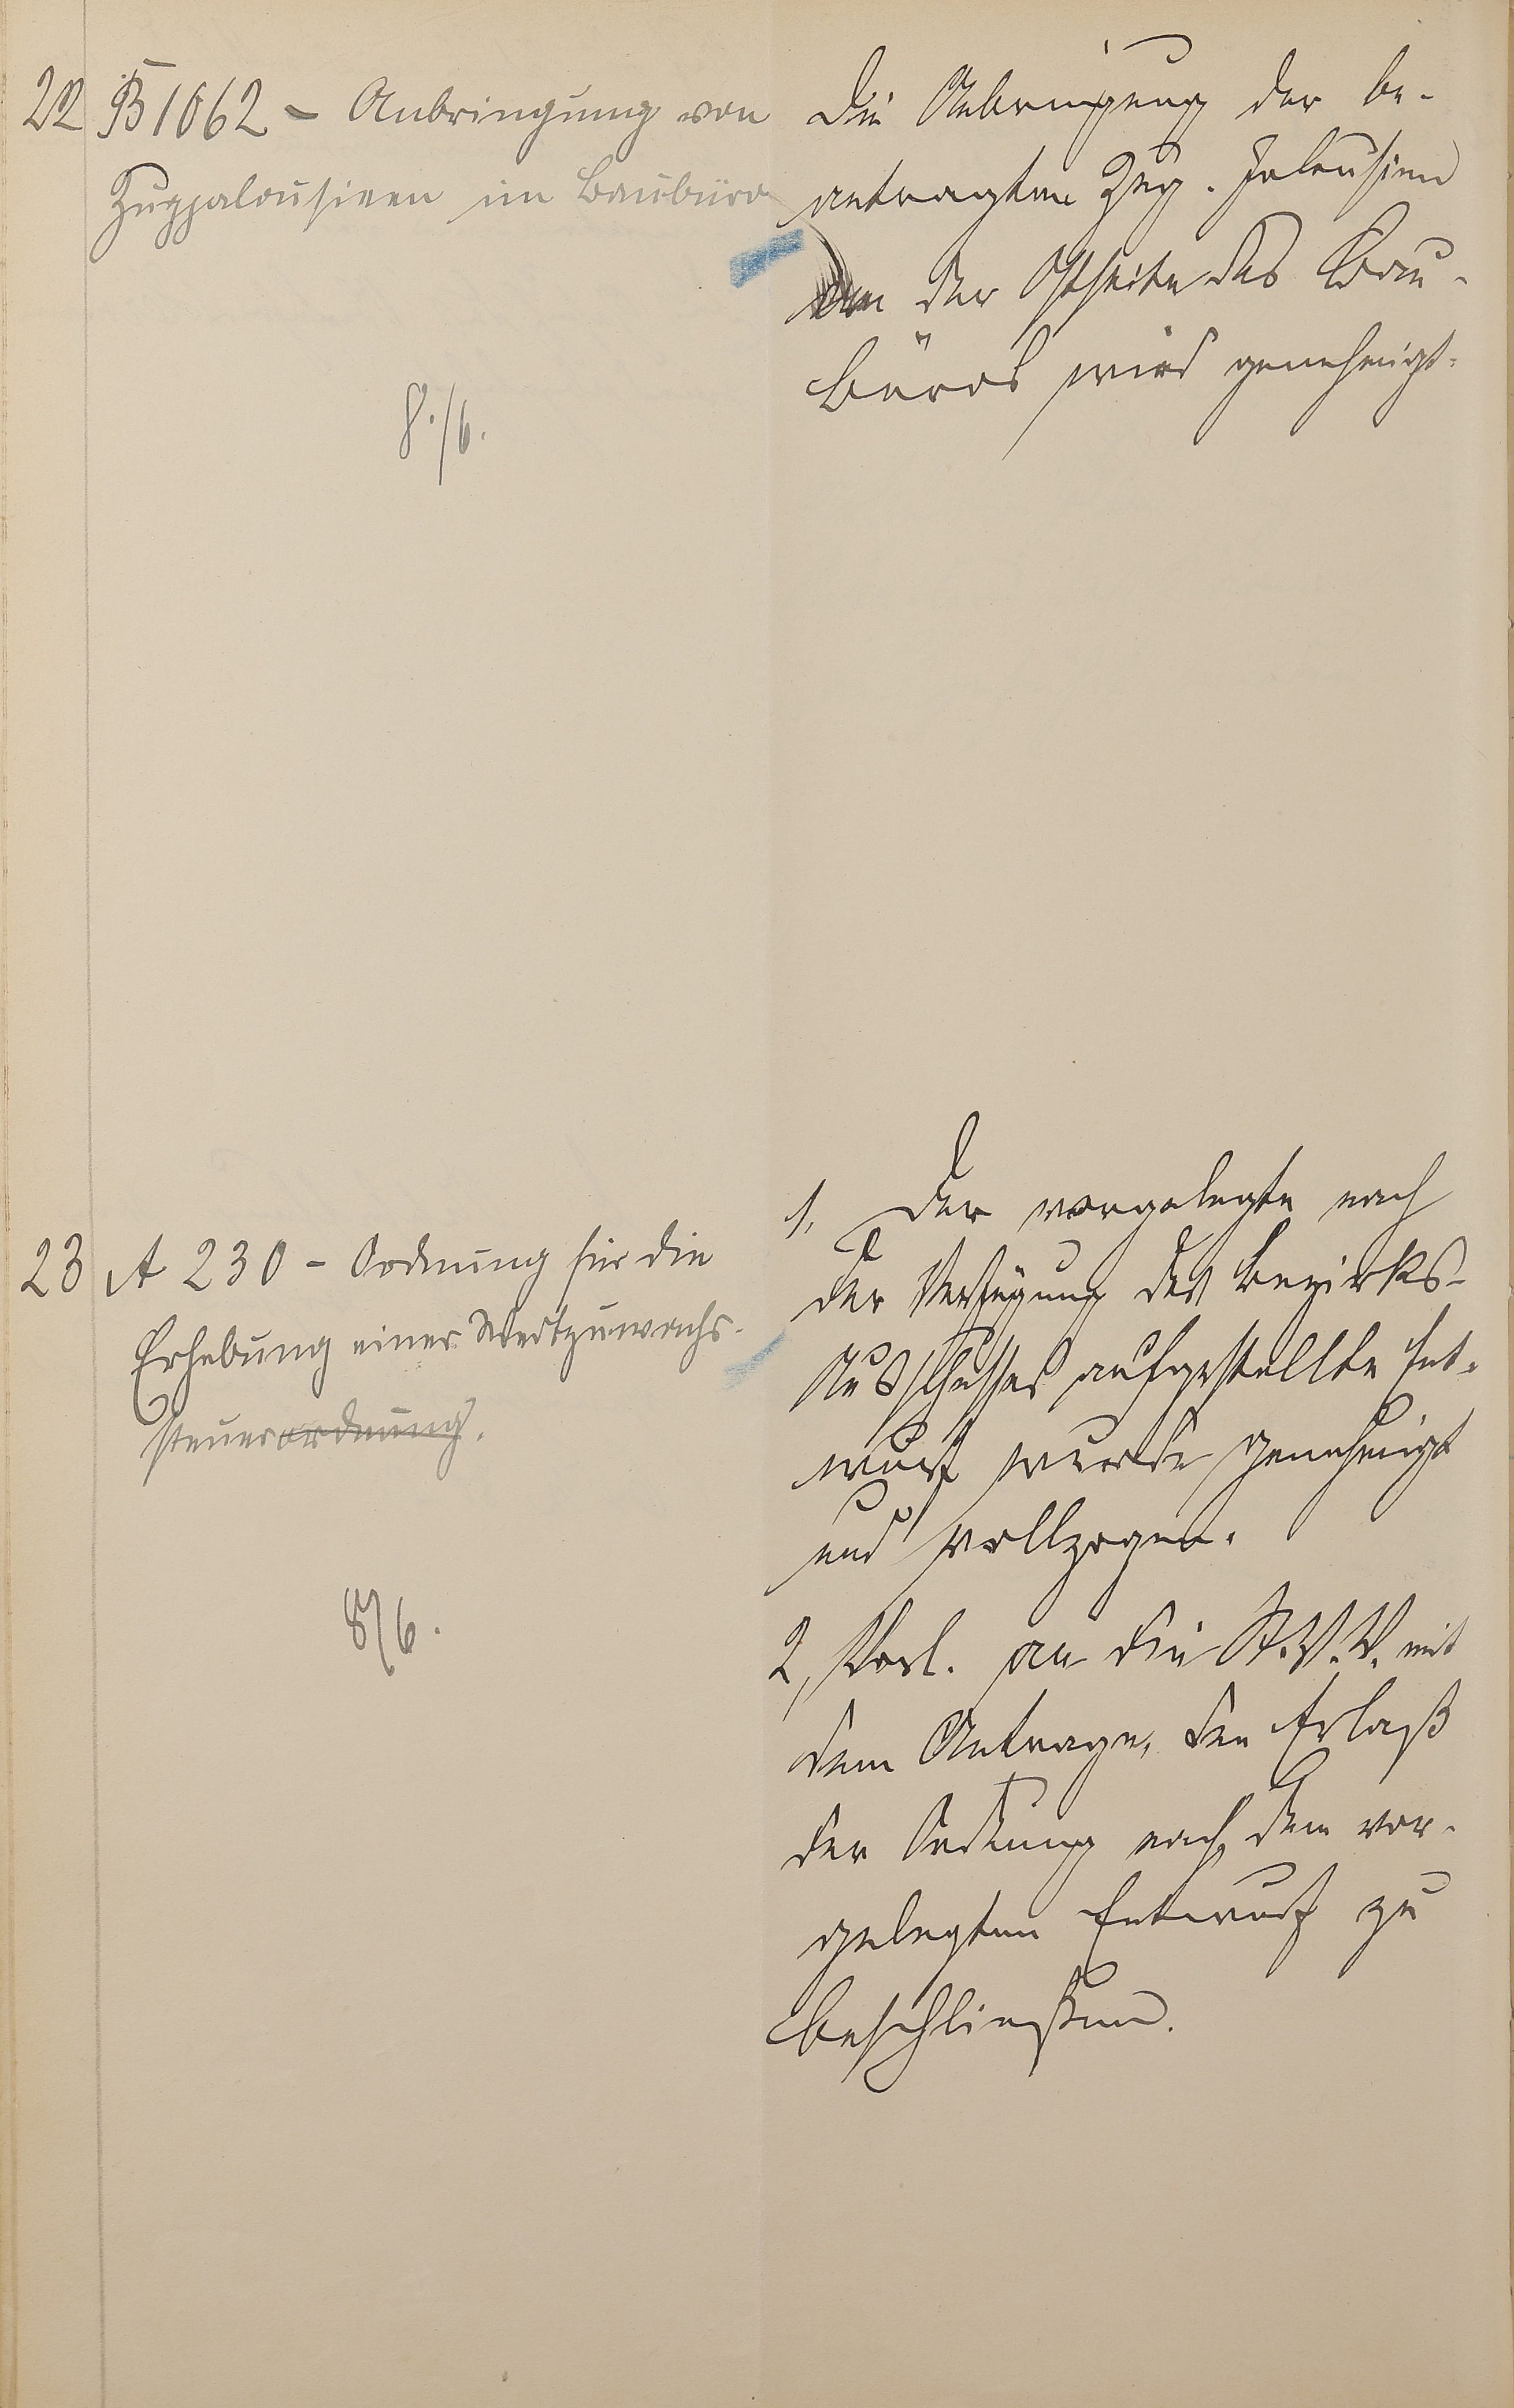 22 B 1062 - Anbringung von
Zugjalousieen im Baubüro
8./6.
Die Anbringung der be-
antragten Zug-Jalousien
an der Ostseite des Bau-
büros wird genehmigt.
23 A 230 - Ordnung für die
Erhebung einer Wertzuwachs-
steuerordnung.
8/6.
1, Der vorgelegte nach
der Verfügung des Bezirks-
Ausschusses aufgestellte Ent-
wurf wurde genehmigt
und vollzogen.
2, Vorl. an die St.V.V. mit
dem Antrage, den Erlaß
der Ordnung nach dem vor-
gelegten Entwurf zu
beschließen.